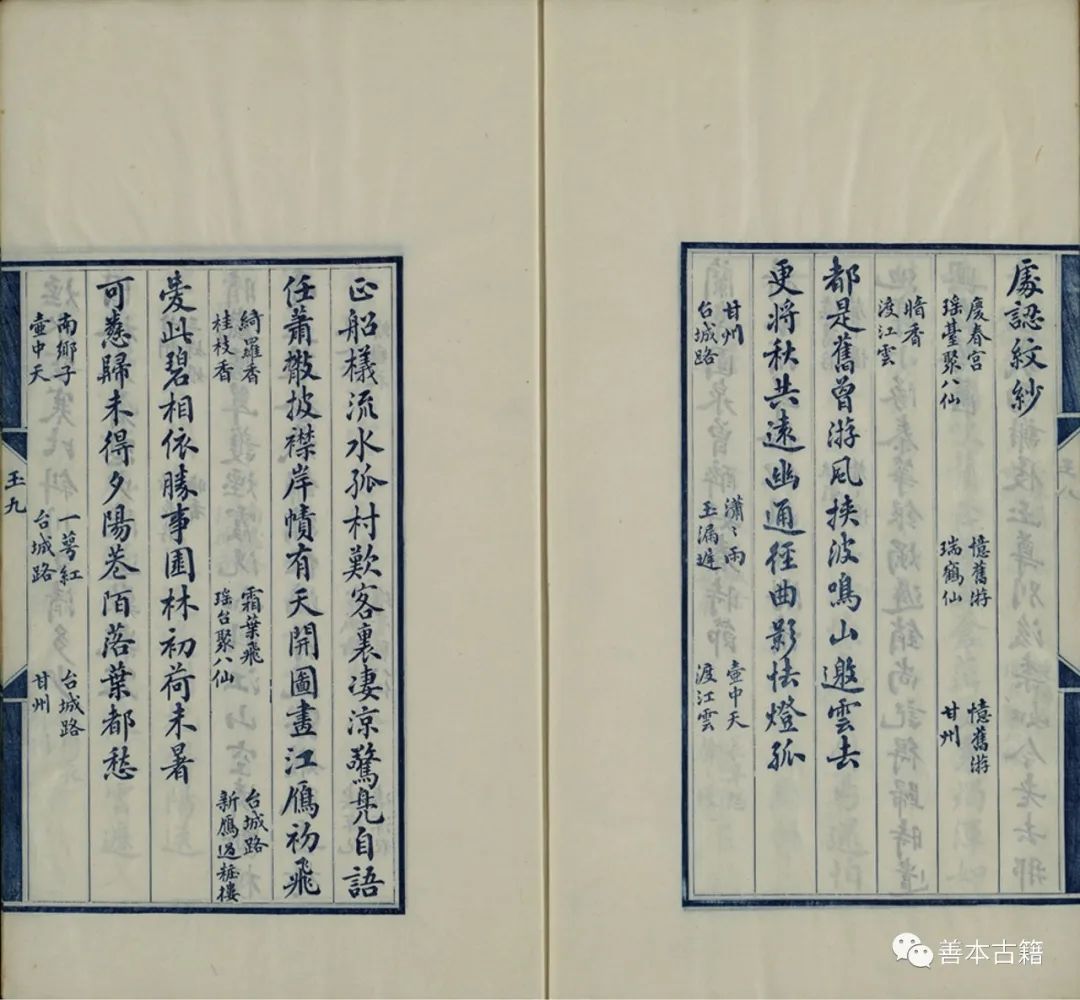 處認紋紗
慶春宮 憶舊游 憶舊游
瑤臺聚八仙 瑞鶴仙 甘州
暗香
渡江雲
都是舊曾游風挾波鳴山邀雲去
更將秋共遠幽通徑曲影怯燈孤
甘州 瀟〻雨 壺中天
台城路 玉漏遲 渡江雲
正船檥流水孤村歎客裏淒涼驚見自語
任蕭散披襟岸幘有天開圖畫江鴈初飛
綺羅香 霜葉飛 台城路
桂枝香 瑤台聚八仙 新鴈過粧樓
愛此碧相依勝事園林初荷未暑
可愁歸未得夕陽巷陌落葉都愁
南鄉子 一萼紅 台城路
壺中天 台城路 甘州
玉九
善本古籍